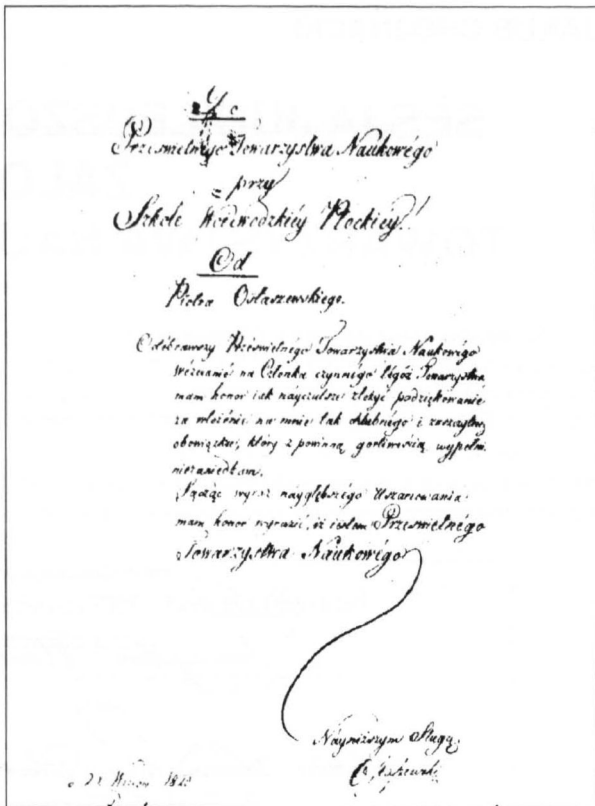 Do
Prześwietnego Towarzystwa Naukowego
przy
Szkole Woiewodzkiéy Płockiéy!
Od
Piotra Ostaszewskiego.
Odebrawszy Prześwietnégo Towarzystwa Naukowégo
Wézwanié na Członka czynnégo tégoż Towarzystwa,
mam honor iak nayczulsze złożyć podziękowanie
za włożénié na mnie tak chlubnégo i zaszczytnég
obowiązku, który z powinną gorliwością wypełni.
niezaniedbam.
Łącząc wyraz nayglębszégo Uszanowania
mam honor wyrazić, iż iestem Prześwietnégo
Towarzystwa Naukowégo
Nayniższym Sługą,
Ostaszewski
d 22 1820